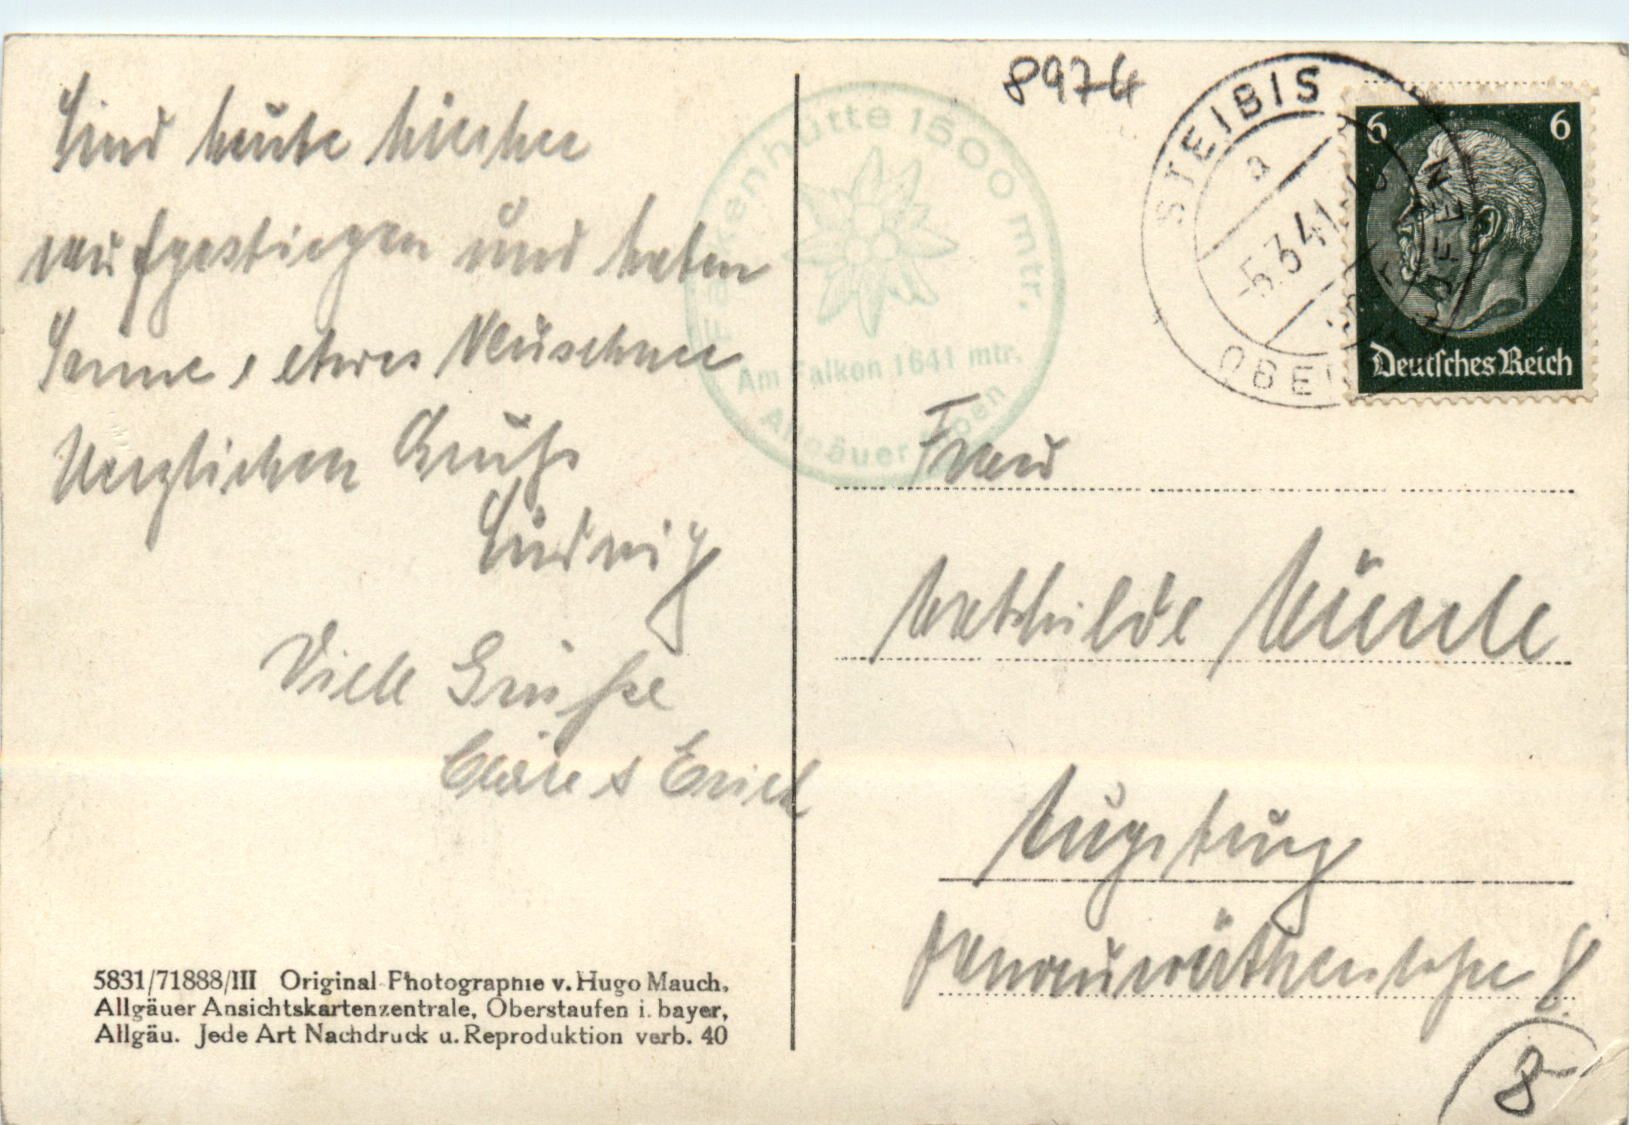 Sind heute hierher
aufgestiegen und haben
Sonne, etwas Neuschnee
Herzlichen Gruß
Ludwig
Viele Grüße
Cläre & Erich
5831/71888/III Original-Photographie v. Hugo Mauch,
Allgäuer Ansichtskartenzentrale, Oberstaufen i. bayer,
Allgäu. Jede Art Nachdruck u. Reproduktion verb. 40
Falkenhütte 1500 mtr.
Am Falken 1641 mtr.
Allgäuer Alpen
8974
STEIBIS
a
-5.3.41
6 6
Deutsches Reich
Frau
Mathilde
Augsburg
8